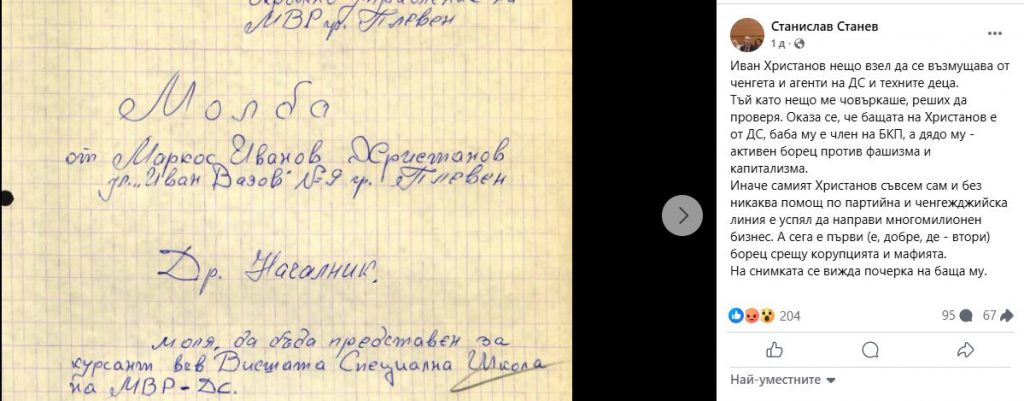 Окръжно управление на
МВР гр. Плевен
Молба
от Маркос Иванов Христанов
ул. "Иван Вазов" №9 гр. Плевен
Др. Началник,
моля, да бъда представен за
курсант във Висшата Специална Школа
на МВР-ДС.
Станислав Станев
1 д
Иван Христанов нещо взел да се възмущава от
ченгета и агенти на ДС и техните деца.
Тъй като нещо ме човъркаше, реших да
проверя. Оказа се, че бащата на Христанов е
от ДС, баба му е член на БКП, а дядо му -
активен борец против фашизма и
капитализма.
Иначе самият Христанов съвсем сам и без
никаква помощ по партийна и ченгежджийска
линия е успял да направи многомилионен
бизнес. А сега е първи (е, добре, де - втори)
борец срещу корупцията и мафията.
На снимката се вижда почерка на баща му.
204
95
67
Най-уместните